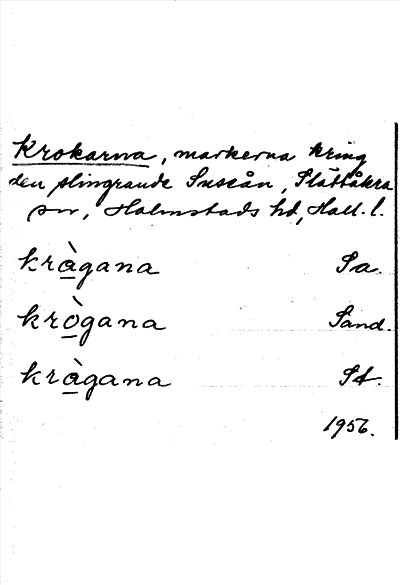 Krokarna, markerna kring
den slingrande Suseån, Slättåkra
sn, Halmstads hd, Hall. l.
kràgana Sa.
krògana Sand.
kràgana St.
1956.